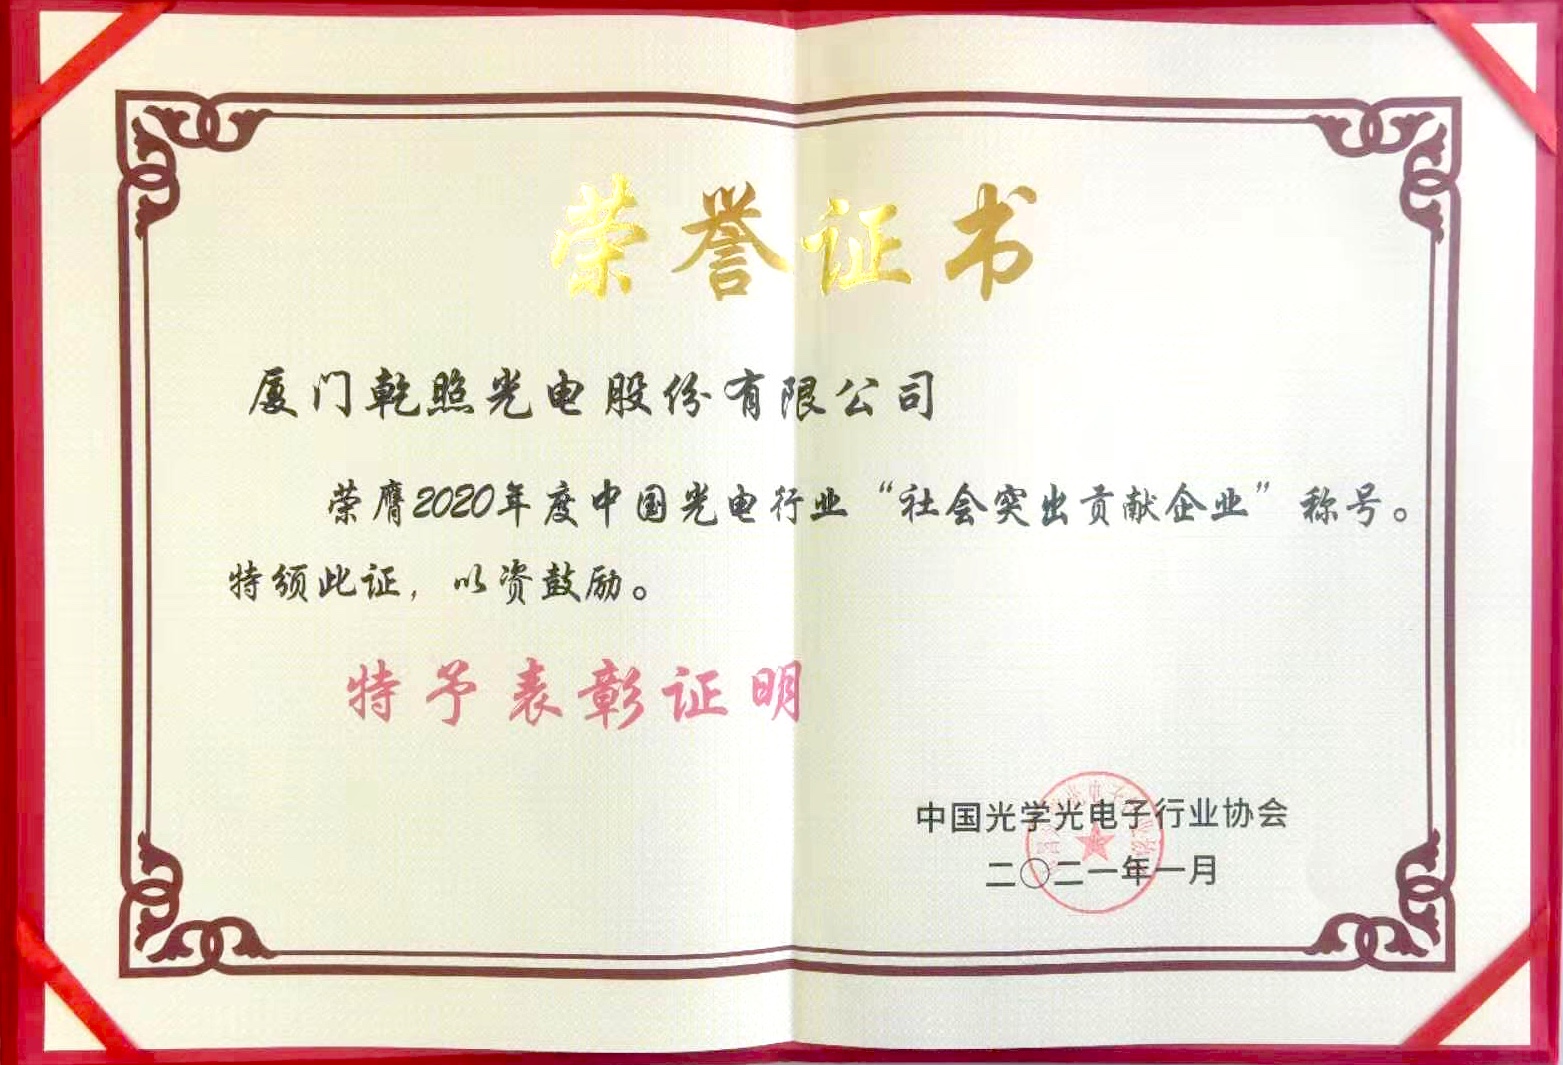 荣誉证书
厦门乾照光电股份有限公司
荣膺2020年度中国光电行业“社会突出贡献企业”称号。
特颁此证，以资鼓励。
特予表彰证明
中国光学光电子行业协会
二〇二一年一月